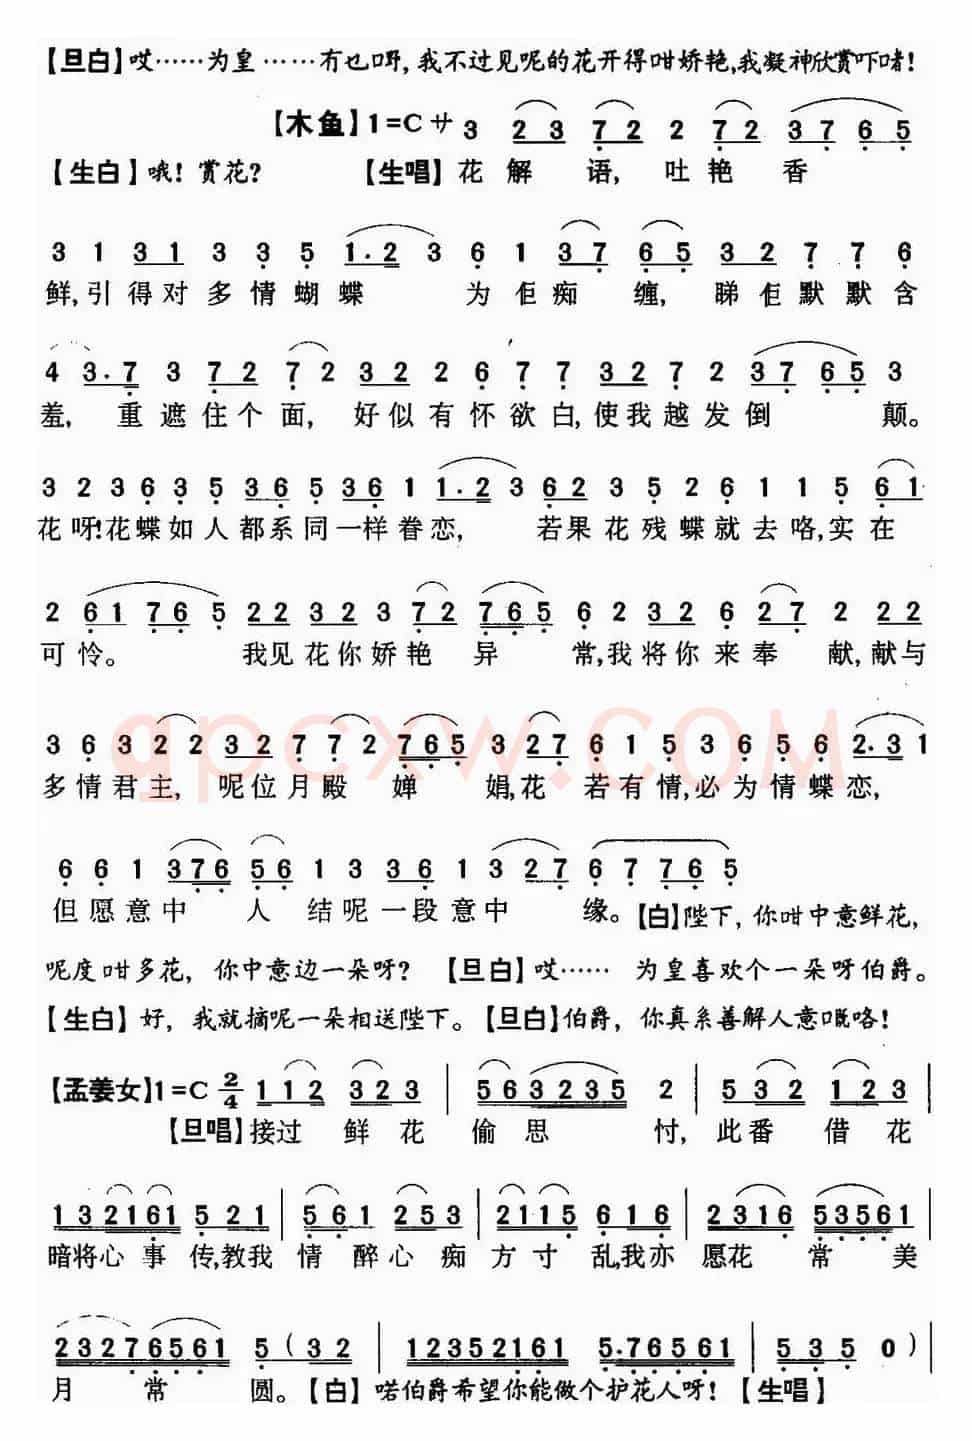 【旦白】哎……为皇……冇乜嘢,我不过见呢的花开得咁娇艳,我凝神欣赏吓啫!
【木鱼】1=C サ 3 2 3 7 2 2 7 2 3 7 6 5
【生白】哦!赏花? 【生唱】花解语,吐艳香
3 1 3 1 3 3 5 1.2 3 6 1 3 7 6 5 3 2 7 7 6
鲜,引得对多情蝴蝶 为佢痴缠,睇佢默默含
4 3.7 3 7 2 7 2 3 2 2 6 7 7 3 2 7 2 3 7 6 5 3
羞,重遮住个面,好似有怀欲白,使我越发倒颠。
3 2 3 6 3 5 3 6 5 3 6 1 1.2 3 6 2 3 5 2 6 1 1 5 6 1
花呀!花蝶如人都系同一样眷恋,若果花残蝶就去咯,实在
2 6 1 7 6 5 2 2 3 2 3 7 2 7 6 5 6 2 3 2 6 2 7 2 2 2
可怜。 我见花你娇艳异常,我将你来奉献,献与
3 6 3 2 2 3 2 7 7 2 7 6 5 3 2 7 6 1 5 3 6 5 6 2.3 1
多情君主,呢位月殿婵娟,花若有情,必为情蝶恋,
qpcxw.COM
6 6 1 3 7 6 5 6 1 3 3 6 1 3 2 7 6 7 7 6 5
但愿意中人结呢一段意中缘。【白】陛下,你咁中意鲜花,
呢度咁多花,你中意边一朵呀? 【旦白】哎…… 为皇喜欢个一朵呀伯爵。
【生白】好,我就摘呢一朵相送陛下。【旦白】伯爵,你真系善解人意嘅咯!
【孟姜女】1=C 2/4 1 1 2 3 2 3 | 5 6 3 2 3 5 2 | 5 3 2 1 2 3 |
【旦唱】接过鲜花偷思忖,此番借花
1 3 2 1 6 1 5 2 1 | 5 6 1 2 5 3 | 2 1 1 5 6 1 6 | 2 3 1 6 5 3 5 6 1 |
暗将心事传,教我情醉心痴方寸乱,我亦愿花常美
2 3 2 7 6 5 6 1 5 ( 3 2 | 1 2 3 5 2 1 6 1 5.7 6 5 6 1 | 5 3 5 0 ) |
月常圆。【白】喏伯爵希望你能做个护花人呀!【生唱】